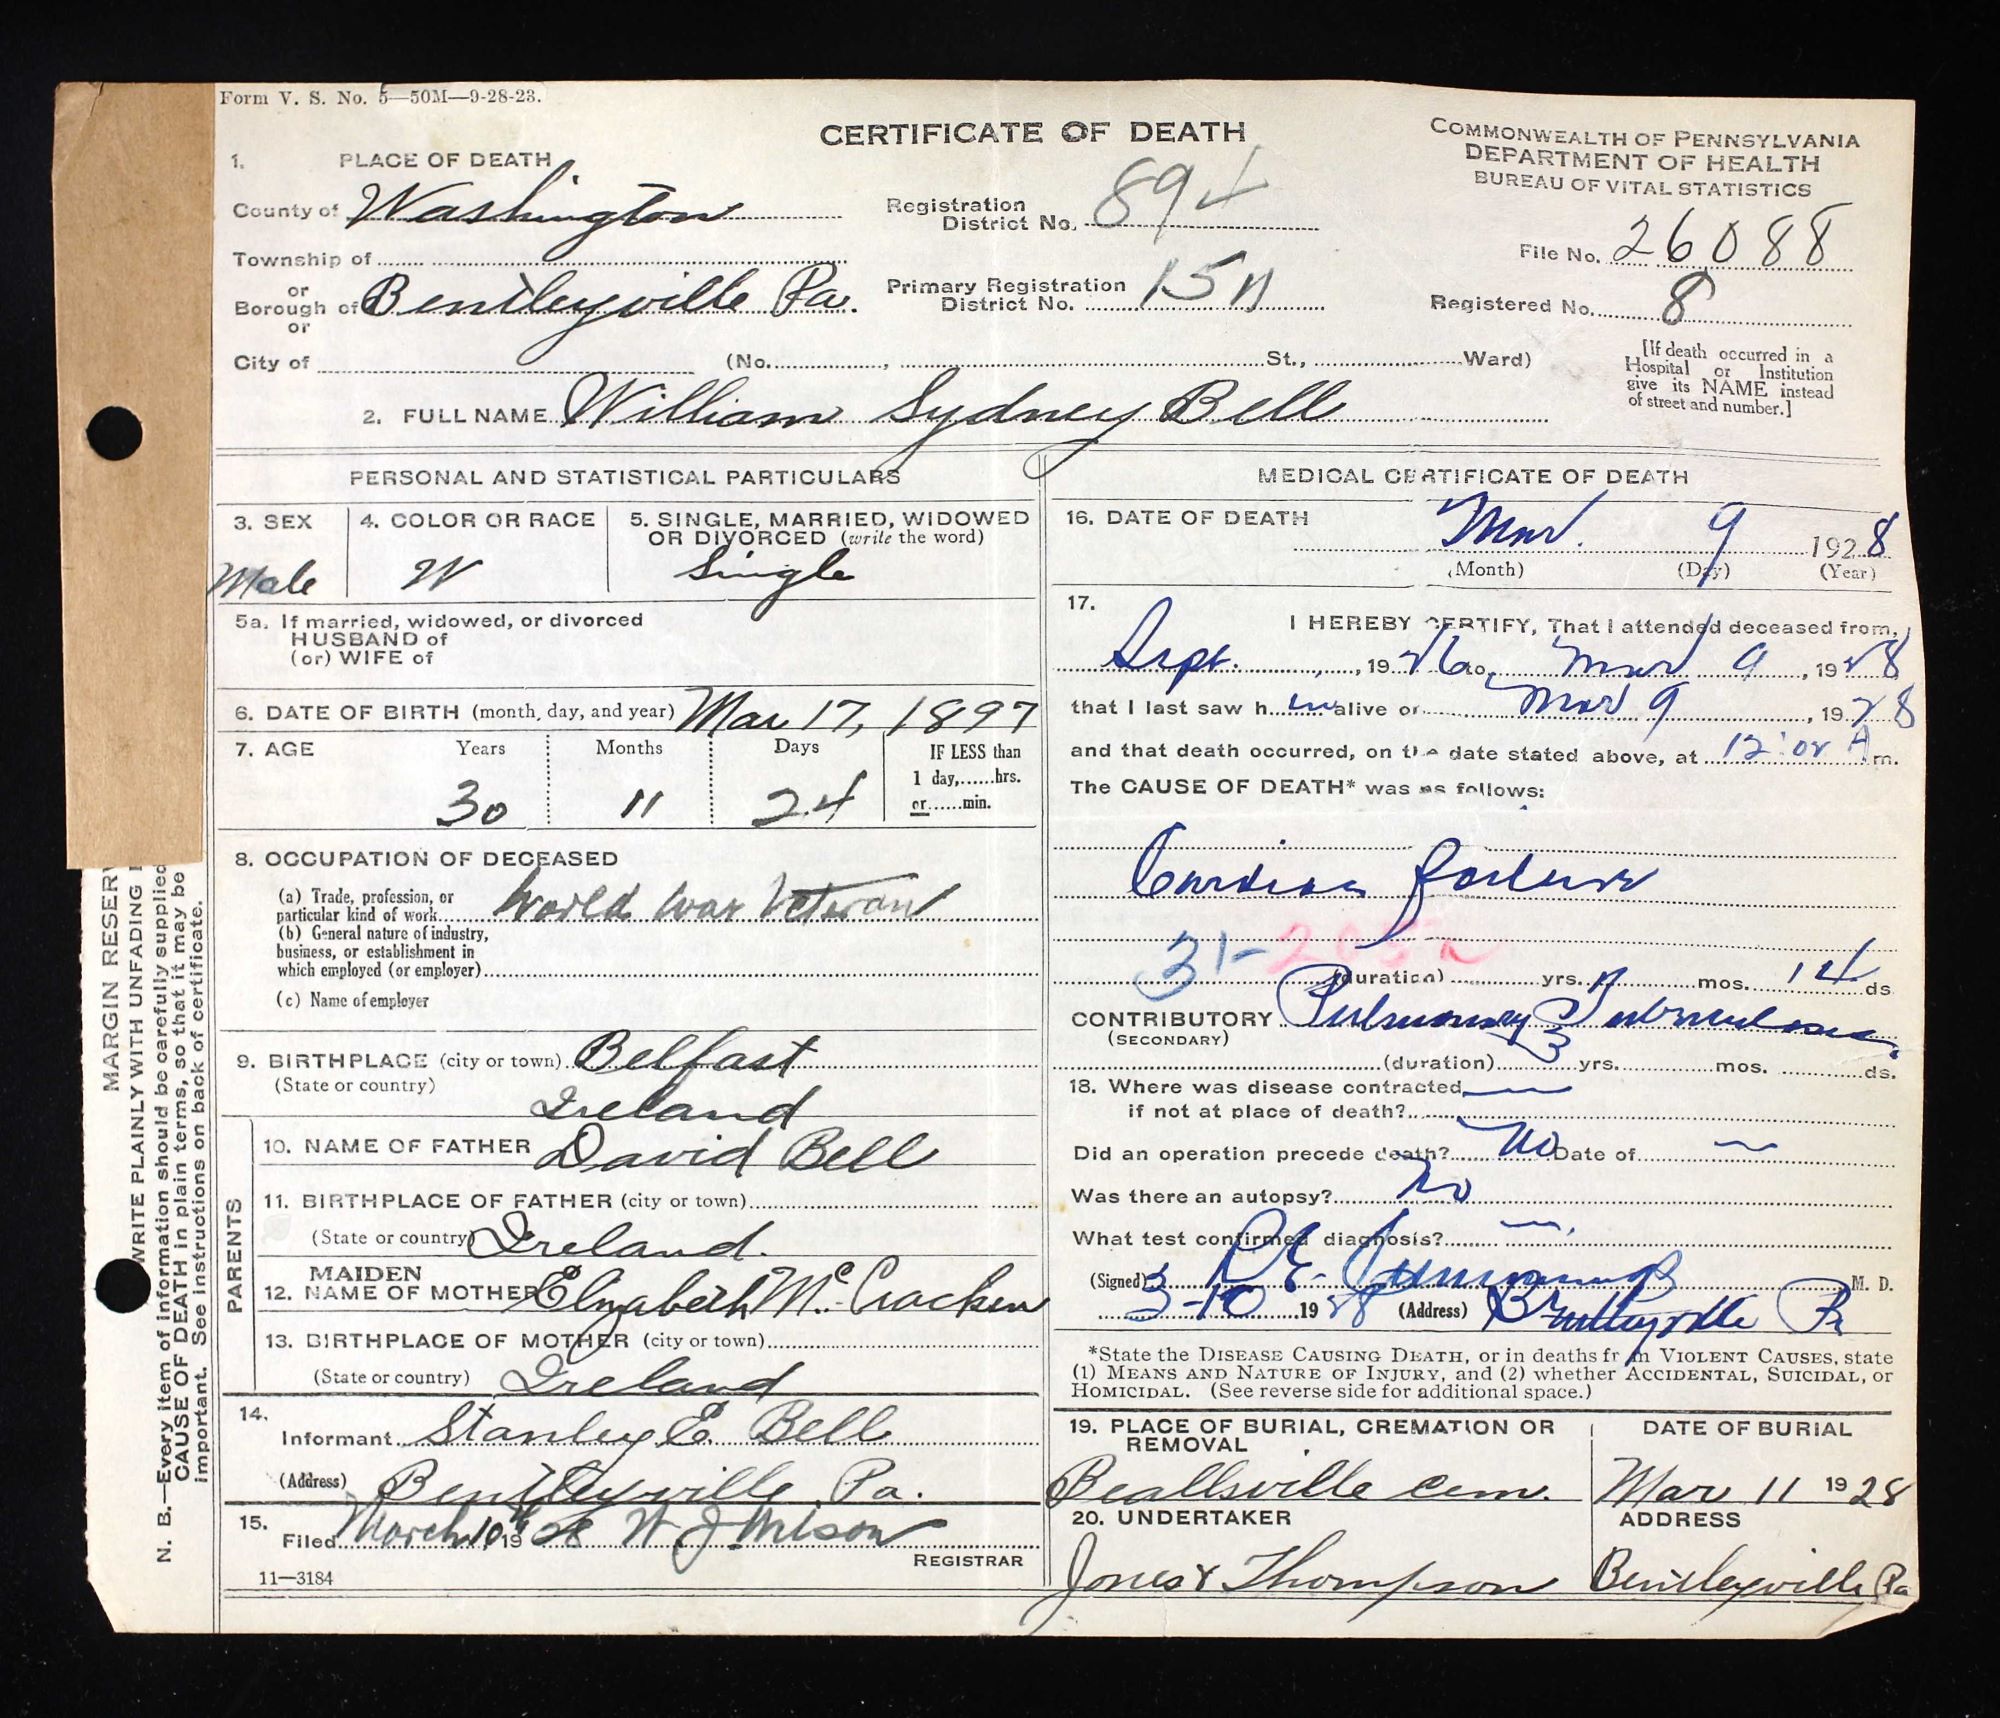 Form V. S. No. 5—50M—9-28-23.
CERTIFICATE OF DEATH
COMMONWEALTH OF PENNSYLVANIA
DEPARTMENT OF HEALTH
BUREAU OF VITAL STATISTICS
1. PLACE OF DEATH
County of Washington
Registration District No. 894
File No. 26088
Township of
or
Borough of Bentleyville Pa.
or
Primary Registration District No.
Registered No. 8
City of (No. , St., Ward)
[If death occurred in a
Hospital or Institution
give its NAME instead
of street and number.]
2. FULL NAME William Sydney Bell
PERSONAL AND STATISTICAL PARTICULARS
3. SEX
Male
4. COLOR OR RACE
W
5. SINGLE, MARRIED, WIDOWED
OR DIVORCED (write the word)
Single
5a. If married, widowed, or divorced
HUSBAND of
(or) WIFE of
6. DATE OF BIRTH (month, day, and year) Mar 17, 1897
7. AGE Years Months Days IF LESS than
1 day,......hrs.
30 11 24 or......min.
8. OCCUPATION OF DECEASED
(a) Trade, profession, or
particular kind of work World War Veteran
(b) General nature of industry,
business, or establishment in
which employed (or employer)
(c) Name of employer
9. BIRTHPLACE (city or town) Belfast
(State or country) Ireland
PARENTS
10. NAME OF FATHER David Bell
11. BIRTHPLACE OF FATHER (city or town)
(State or country) Ireland.
12. MAIDEN NAME OF MOTHER Elizabeth Mc Cracken
13. BIRTHPLACE OF MOTHER (city or town)
(State or country) Ireland
14.
Informant Stanley E. Bell
(Address) Bentleyville, Pa.
15.
Filed March 10th 1928 W J
REGISTRAR
11—3184
MEDICAL CERTIFICATE OF DEATH
16. DATE OF DEATH
Mar. 9 1928
(Month) (Day) (Year)
17.
I HEREBY CERTIFY, That I attended deceased from
Sept. , 1926 to Mar 9 , 1928
that I last saw h im alive on Mar 9 , 1928
and that death occurred, on the date stated above, at 12:01 A m.
The CAUSE OF DEATH* was as follows:
Cardiac failure
31-
(duration) yrs. mos. 14 ds
CONTRIBUTORY Pulmonary Tuberculosis.
(SECONDARY)
(duration) 3 yrs. mos. ds.
18. Where was disease contracted
if not at place of death? —
Did an operation precede death? No Date of —
Was there an autopsy? No
What test confirmed diagnosis? —
(Signed) Cummings M. D.
3-10 1928 (Address) Bentleyville Pa
*State the DISEASE CAUSING DEATH, or in deaths from VIOLENT CAUSES, state
(1) MEANS AND NATURE OF INJURY, and (2) whether ACCIDENTAL, SUICIDAL, or
HOMICIDAL. (See reverse side for additional space.)
19. PLACE OF BURIAL, CREMATION OR
REMOVAL
Beallsville Cem.
DATE OF BURIAL
Mar 11 1928
20. UNDERTAKER
Jones & Thompson
ADDRESS
Bentleyville Pa
MARGIN RESERV
WRITE PLAINLY WITH UNFADING I
N. B.—Every item of information should be carefully supplied
CAUSE OF DEATH in plain terms, so that it may be
important. See instructions on back of certificate.